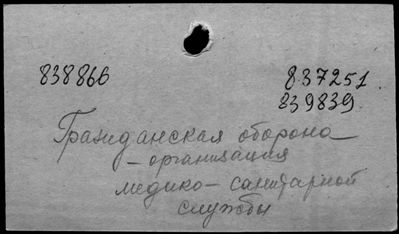 838866 837251
839839
Гражданская оборона –
– организация
медико – санитарной
службы